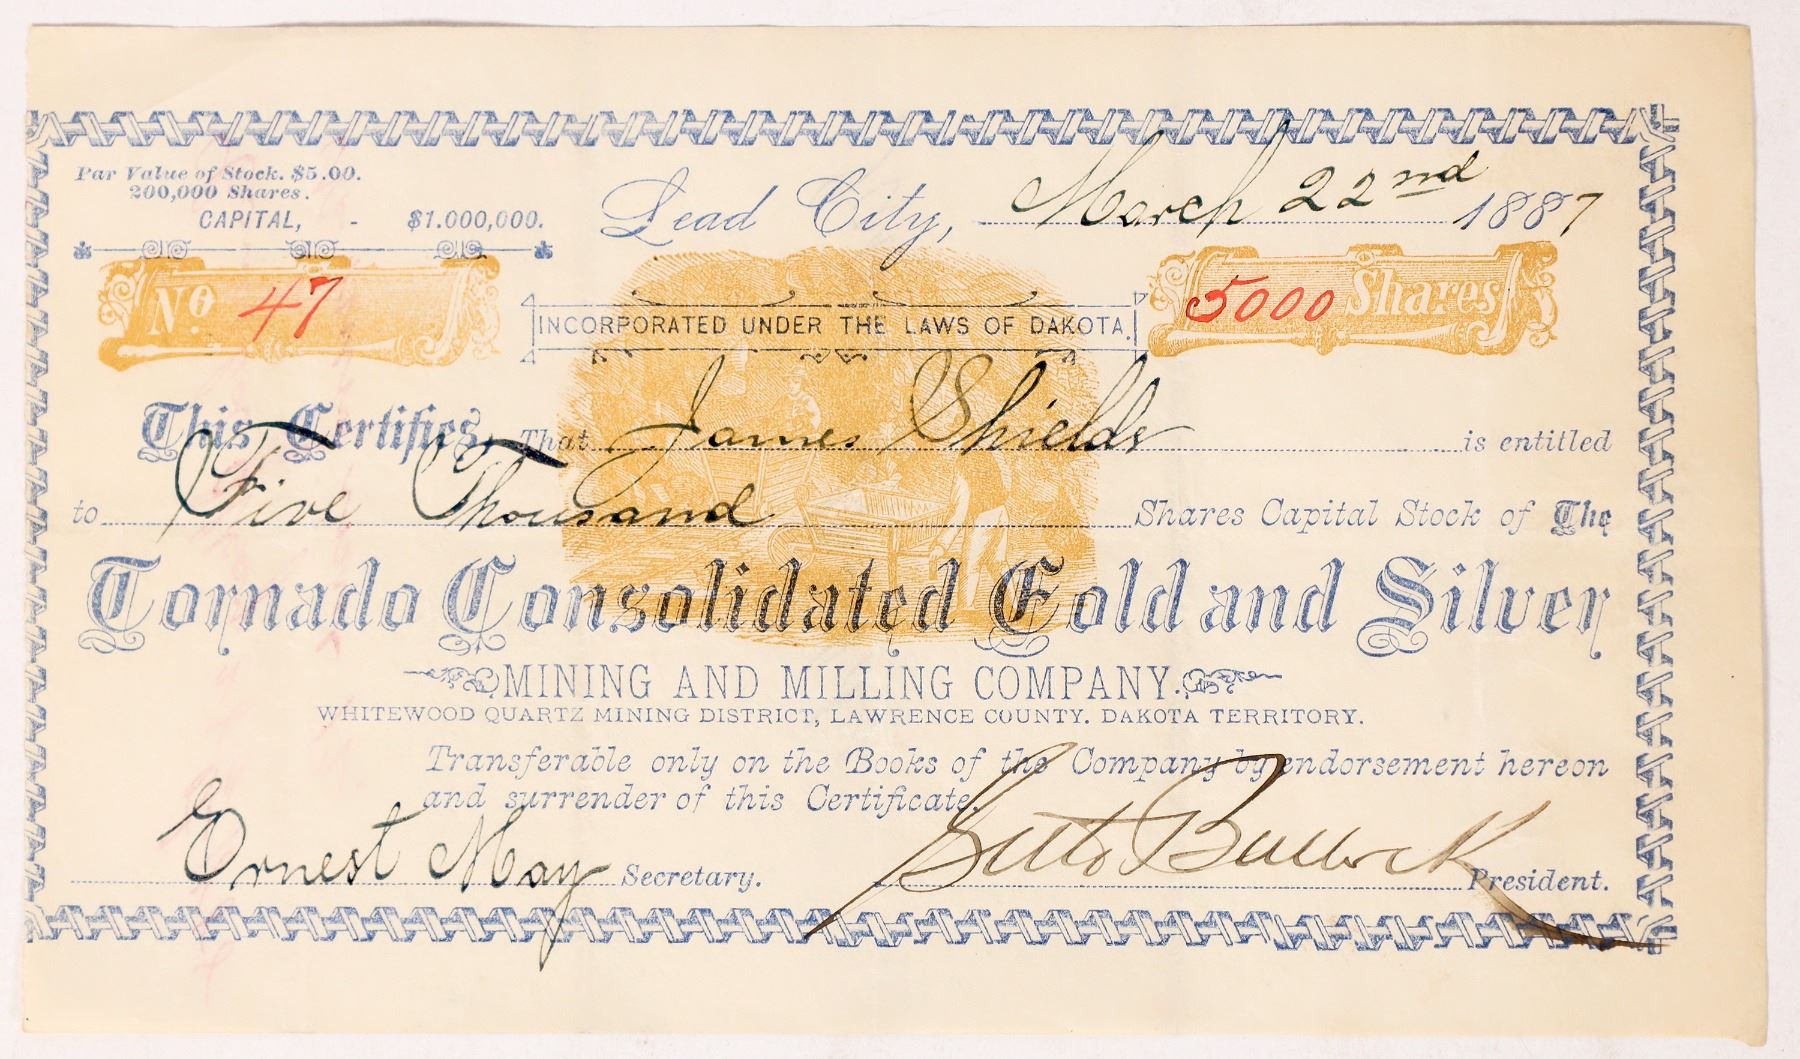 Par Value of Stock. $5.00.
200,000 Shares.
CAPITAL, - $1.000,000.
Lead City, March 22nd 1887
No 47
INCORPORATED UNDER THE LAWS OF DAKOTA.
5000 Shares
This Certifies, That James Shields is entitled
to Five Thousand Shares Capital Stock of The
Tornado Consolidated Gold and Silver
MINING AND MILLING COMPANY.
WHITEWOOD QUARTZ MINING DISTRICT, LAWRENCE COUNTY. DAKOTA TERRITORY.
Transferable only on the Books of the Company by endorsement hereon
and surrender of this Certificate.
Ernest May Secretary.
Seth Bullock President.